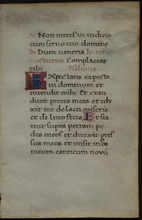 Non intres in iudicio
cum servo tuo domine
Dum veneris
Complaceat
tibi
Expectans expecta
vi dominum et
intendit mihi Et exau
divit preces meas et edu
xit me de lacu miserie
et de luto fecis Et sta
tuit supra petram pe
des meos et direxit gres
sus meos Et misit in os
meum canticum novum